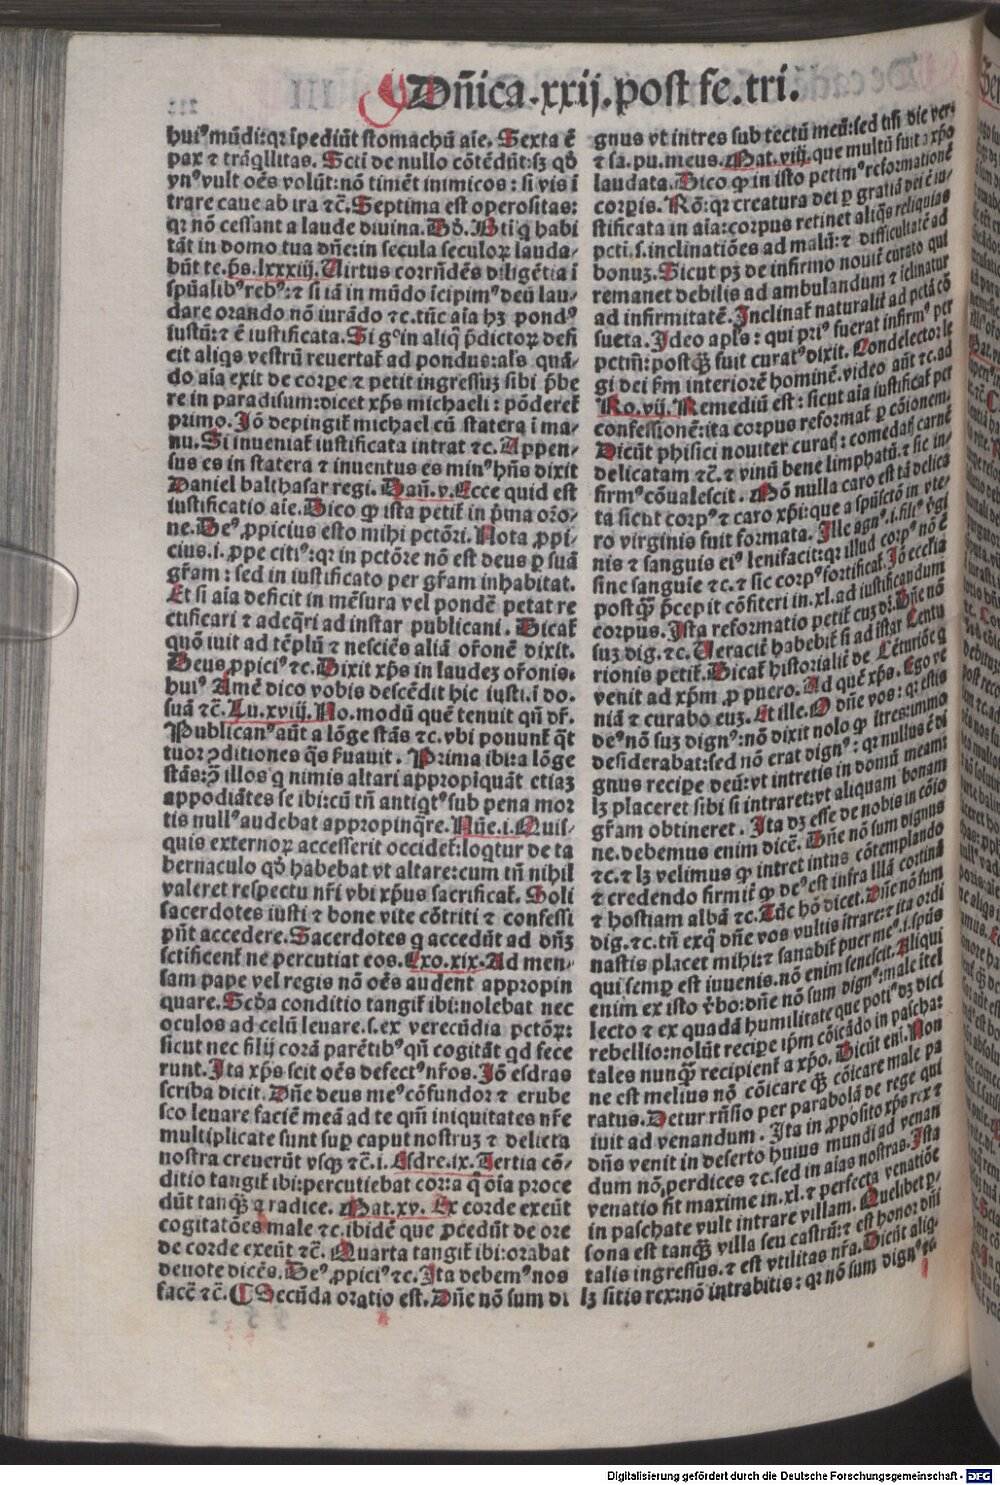 Dñica.xxij.post fe.tri.
huiꝰ mũdi:qꝛ ĩpediũt stomachũ aĩe. Sexta ẽ
pax ⁊ trãq̃llitas. Scti de nullo cõtẽdũt:sꝫ qd̃
vnꝰ vult oẽs volũt:nõ timẽt inimicos: si vis ĩ
trare caue ab ira ⁊c̃. Septima est operositas:
qꝛ nõ cessant a laude diuina. Dd̃. Bti q̃ habi
tãt in domo tua dñe:in secula seculoꝝ lauda⸗
bũt te.p̃s.lxxxiij. Uirtus corrñdẽs diligẽtia ĩ
spũalibꝰ rebꝰ:⁊ si iã in mũdo ĩcipimꝰ deũ lau⸗
dare orando nõ iurãdo ⁊c.tũc aĩa hꝫ pondꝰ
iustũ:⁊ ẽ iustificata. Si gͦ in aliq̃ p̃dictoꝝ defi
cit aliqs vestrũ reuertat̃ ad pondus:als quã⸗
do aĩa exit de corpe ⁊ petit ingressuꝫ sibi p̃be
re in paradisum:dicet xp̃s michaeli: põderet̃
primo. Jõ depingit̃ michael cũ statera ĩ ma⸗
nu. Si inueniat̃ iustificata intrat ⁊c. Appen⸗
sus es in statera ⁊ inuentus es minꝰ hñs dixit
Daniel balthasar regi. Dañ.v. Ecce quid est
iustificatio aĩe. Dico ꝙ ista petit̃ in p̃ma or̃o⸗
ne. Deꝰ ꝓpicius esto mihi pctõri. Nota ꝓpi⸗
cius.i.ꝓpe citiꝰ:qꝛ in pctõre nõ est deus ꝑ suã
gr̃am: sed in iustificato per gr̃am inhabitat.
Et si aĩa deficit in mẽsura vel pondẽ petat re
ctificari ⁊ adeq̃ri ad instar publicani. Dicat̃
quõ iuit ad tẽplũ ⁊ nesciẽs aliã or̃onẽ dixit.
Deus ꝓpiciꝰ ⁊c. Dixit xp̃s in laudeꝫ or̃onis.
huiꝰ Amẽ dico vobis descẽdit hic iusti.ĩ do.
suã ⁊c̃. Lu.xviij. No.modũ quẽ tenuit qñ or̃.
Publicanꝰ aũt a lõge stãs ⁊c.vbi ponunt̃ q̃t
tuor ꝯditiones q̃s ẜuauit. Prima ibi:a lõge
stãs:ꝯ̃ illos q̃ nimis altari appropĩquãt etiaꝫ
appodiãtes se ibi:cũ tñ antiq̃tꝰ sub pena mor
tis nullꝰ audebat appropinq̃re. Nũe.i. Quis⸗
quis externoꝝ accesserit occidet̃:loq̃tur de ta
bernaculo qd̃ habebat vt altare:cum tñ nihil
valeret respectu nr̃i vbi xp̃us sacrificat̃. Soli
sacerdotes iusti ⁊ bone vite cõtriti ⁊ confessi
pñt accedere. Sacerdotes q̃ accedũt ad dñꝫ
sctificent̃ ne percutiat eos. Exo.xix. Ad men⸗
sam pape vel regis nõ oẽs audent appropin
quare. Scd̃a conditio tangit̃ ibi:nolebat nec
oculos ad celũ leuare.s.ex verecũdia pctõꝝ:
sicut nec filij corã parẽtibꝰ qñ cogitãt qd fece
runt. Ita xp̃s scit oẽs defectꝰ nr̃os. Jõ esdras
scriba dicit. Dñe deus meꝰ cõfundoꝛ ⁊ erube
sco leuare faciẽ meã ad te qm̃ iniquitates nr̃e
multiplicate sunt suꝑ caput nostruꝫ ⁊ delicta
nostra creuerũt vsqꝫ ⁊c̃.i. Esdre.ix. Tertia cõ⸗
ditio tangit̃ ibi:percutiebat corꝛa q̃ oĩa proce
dũt tanqꝫ̃ a radice. Mat.xv. Ex corde exeũt
cogitatões male ⁊c.ibidẽ que ꝓcedũt de ore
de corde exeũt ⁊c̃. Quarta tangit̃ ibi:orabat
deuote dicẽs. Deꝰ ꝓpiciꝰ ⁊c. Ita debemꝰ nos
facẽ ⁊c̃. ¶ Secũda oratio est. Dñe nõ sum di
gnus vt intres sub tectũ meũ:sed tm̃ dic ver⸗
⁊ sa.pu.meus. Mat.viij.que multũ fuit a xp̃o
laudata. Dico ꝙ in isto petimꝰ reformationẽ
corpis. Rõ:qꝛ creatura dei ꝑ gratiã dei ẽ iu⸗
stificata in aĩa:corpus retinet aliq̃s reliquias
pcti.s.inclinatiões ad malũ:⁊ difficultatẽ ad
bonuꝫ. Sicut pꝫ de infirmo nouit̃ curato qui
remanet debilis ad ambulandum ⁊ ĩclinatur
ad infirmitatẽ. Inclinat̃ naturalit̃ ad pctã cõ
sueta. Ideo apl̃s: qui priꝰ fuerat infirmꝰ per
petm̃:postqꝫ̃ fuit curatꝰ dixit. Condelector le
gi dei ẜm interiorẽ hominẽ.video aũt ⁊c.ad
Ro.vij. Remediũ est: sicut aĩa iustificat̃ per
confessionẽ:ita corpus reformat̃ ꝑ cõionem.
Dicũt phisici nouiter curat̃: comedat̃ carnẽ
delicatam ⁊c̃.⁊ vinũ bene limphatũ.⁊ sic in⸗
firmꝰ cõualescit. Mõ nulla caro est tã delica
ta sicut corpꝰ ⁊ caro xp̃i:que a spũscto in vte⸗
ro virginis fuit formata. Ille agnꝰ.i.filiꝰ v̓gi
nis ⁊ sanguis eiꝰ lenifacit:qꝛ illud corpꝰ nõ ẽ
sine sanguie ⁊c.⁊ sic corpꝰ fortificat̃. Jõ ecclia
postqꝫ̃ p̃cepit cõfiteri in.xl.ad iustificandum
corpus. Ista reformatio petit̃ cuꝫ dr̃. Dñe nõ
suꝫ dig.⁊c. Ueracit̃ habebit̃ si ad istar Centu
rionis petit̃. Dicat̃ historialit̃ de Cẽturiõe q̃
venit ad xp̃m ꝓ puero. Ad quẽ xp̃s. Ego ve
niã ⁊ curabo euꝫ. Et ille. O dñe vos: qꝛ estis
deꝰ nõ suꝫ dignꝰ:nõ dixit nolo ꝙ ĩtres:immo
desiderabat:sed nõ erat dignꝰ: qꝛ nullus ẽ di
gnus recipe deũ:vt intretis in domũ meam:
lꝫ placeret sibi si intraret:vt aliquam bonam
gr̃am obtineret. Ita dꝫ esse de nobis in cõio
ne.debemus enim dicẽ. Dñe nõ sum dignus
⁊c.⁊ lꝫ velimus ꝙ intret intus cõtemplando
⁊ credendo firmit̃ ꝙ deꝰ est infra illã cortinã
⁊ hostiam albã ⁊c. Tũc hõ dicet. Dñe nõ sum
dig.⁊c.tñ exq̃ dñe vos vultis ĩtrare:⁊ ita ordi
nastis placet mihi:⁊ sanabit̃ puer meꝰ.i.spũs
qui semꝑ est iuuenis.nõ enim senescit. Aliqui
enim ex isto v̓bo:dñe nõ sum dignꝰ:male ĩtel
lecto ⁊ ex quadã humilitate que potiꝰ dꝫ dici
rebellio:nolũt recipe ip̃m cõicãdo in pascha:
tales nunqꝫ̃ recipient̃ a xp̃o. Dicũt eni. Non
ne est melius nõ cõicare qꝫ̃ cõicare male pa
ratus. Detur rñsio per parabolã de rege qui
iuit ad venandum. Ita in ꝓposito xp̃s rex ⁊
dñs venit in deserto huius mundi ad venan
dum nõ perdices ⁊c.sed in aĩas nostras. Ista
venatio fit maxime in.xl.⁊ perfecta venatiõe
in paschate vult intrare villam. Quelibet ꝑ⸗
sona est tanqꝫ̃ villa seu castrũ:⁊ est honor dñi
talis ingressus.⁊ est vtilitas nr̃a. Dicũt aliq̃⸗
lꝫ sitis rex:nõ intrabitis: qꝛ nõ sum dignꝰ
Digitalisierung gefördert durch die Deutsche Forschungsgemeinschaft - DFG